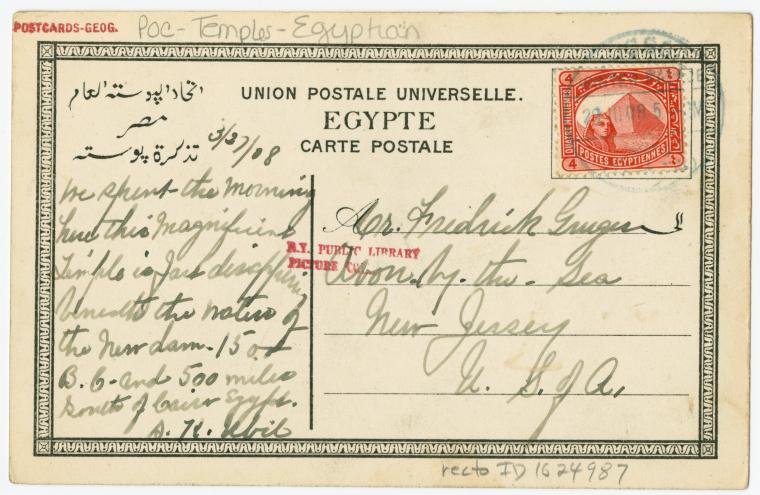 POSTCARDS-GEOG.
POC - Temples - Egyptian
اتحاد البوسته العام
مصر
تذكرة بوسته
UNION POSTALE UNIVERSELLE.
EGYPTE
CARTE POSTALE
4 4
QUATRE MILLIEMES
POSTES EGYPTIENNES
4
3/27/08
We spent the morning
here this Magnificient
Temple is fast
beneath the waters of
the New dam - 1500
B.C. and 500 miles
South of Cairo Egypt.
A. K.
N.Y. PUBLIC LIBRARY
PICTURE
Mr. Fredrick
Avon. by. the. Sea
New Jersey
U. S. of A.
recto ID 1624987